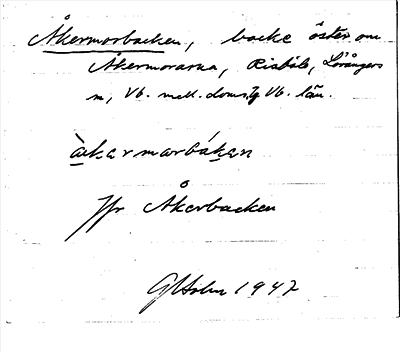 Åkermorbacken, backe öster om
Åkermorarna, Risböle, Lövångers
sn, Vb. mell. doms. Vb. län.
àkarmorbákan
Jfr Åkerbacken
GHolm 1947